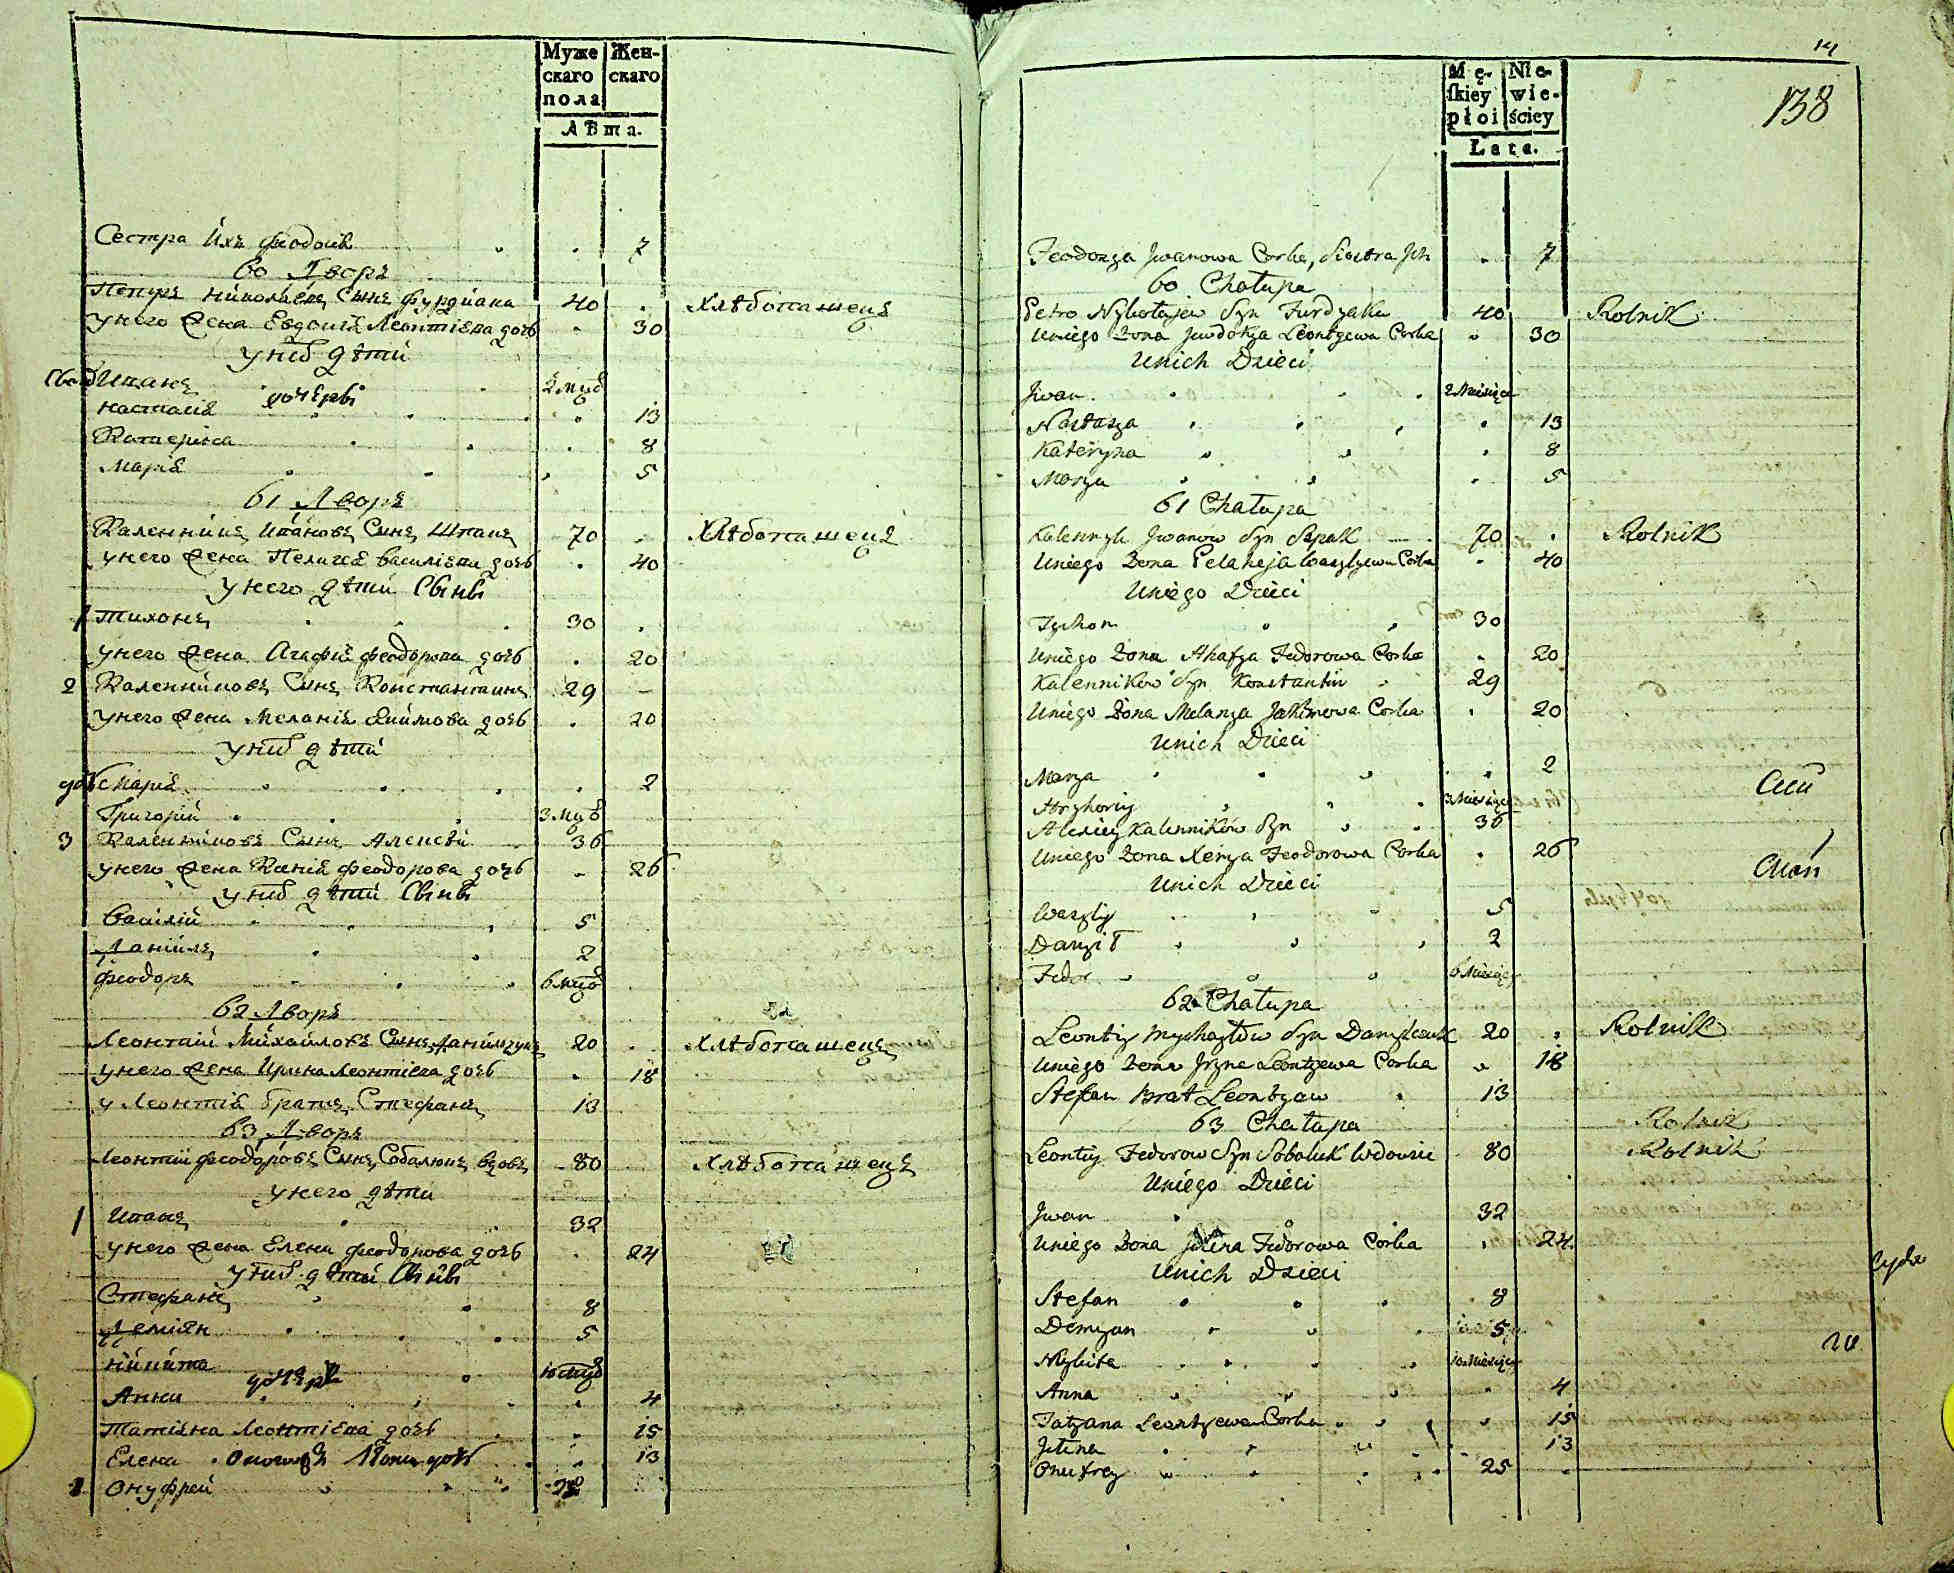 Муже
скаго
пола
Жен-
скаго
Лѣта.
Сестра Ихъ Феодосія 7
60 Дворъ
Петръ Николаевъ Сынъ Фурдиака 40 Хлѣбопашецъ
у него жена Евдокія Леонтіева дочь 30
у них дѣти
Сынъ Иванъ 2 мцѣ
дочерѣ
Настасія 13
Катерина 8
Марія 5
61 Дворъ
Каленникъ Ивановъ Сынъ Шпакъ 70 Хлѣбопашецъ
у него жена Пелагея Василіева дочь 40
у него дѣти Сынѣ
1 Тихонъ 30
у него жена Агафія Феодорова дочь 20
2 Каленниковъ Сынъ Константинъ 29
у него жена Меланія Якимова дочь 20
у них дѣти
дочь Марія 2
Григорій 3 мцѣ
3 Каленниковъ Сынъ Алексѣй 36
у него жена Ксенія Феодорова дочь 26
у них дѣти Сынѣ
Василій 5
Даніилъ 2
Феодоръ 6 мцѣ
62 Дворъ
Леонтій Михайловъ Сынъ 20 Хлѣбопашецъ
у него жена Ирина Леонтіева дочь 18
у Леонтія братъ Стефанъ 13
63 Дворъ
Леонтій Феодоровъ Сынъ Соболюкъ вдовъ 80 Хлѣбопашецъ
у него дѣти
1 Иванъ 32
у него жена Елена Феодорова дочь 24
у них дѣти Сынѣ
Стефанъ 8
Деміян 5
Никита 10 мцѣ
дочерѣ
Анна 4
Татіяна Леонтіева дочь 15
Елена 13
2 Онуфрей
14
138
Mę-
ſkiey
płoi
Nie-
wie-
ściey
Lata.
Feodozya Jwanowa Corka, Siostra Jch 7
60 Chałupa
Petro Nykołajew Syn Furdyaka 40 Rolnik
Uniego Żona Jwdokya Leontyewa Corka 30
Unich Dzieci
Jwan 2 Miesięce
Nastazya 13
Kateryna 8
Marya 5
61 Chałupa
Kalennyk Jwanow Syn Szpak 70 Rolnik
Uniego Żona Pelaheja Wasylyewa Corka 40
Uniego Dzieci
Tychon 30
Uniego Żona Ahafya Fedorowa Corka 20
Kalennikow Syn Konstantin 29
Uniego Żona Melanya Jakimowa Corka 20
Unich Dzieci
Marya 2
Hryhoriy 3 Miesięce
Alexiey Kalennikow Syn 36
Uniego Żona Xenya Feodorowa Corka 26
Unich Dzieci
Wasyliy 5
Danyił 2
Fedor 6 Miesięcy
62 Chałupa
Leontiy Mychayłow Syn 20 Rolnik
Uniego Żona Jryna Leontyewa Corka 18
Stefan brat Leontyaw 13
63 Chałupa
Rolnik
Leontiy Fedorow Syn Soboluk Wdowiec 80 Rolnik
Uniego Dzieci
Jwan 32
Uniego Żona Fedorowa Corka 24
Unich Dzieci
Stefan 8
Demyan 5
Nykita 10 Miesięcy
Anna 4
Tatyana Leontyewa Corka 15
Jelena 13
Onufrey 25